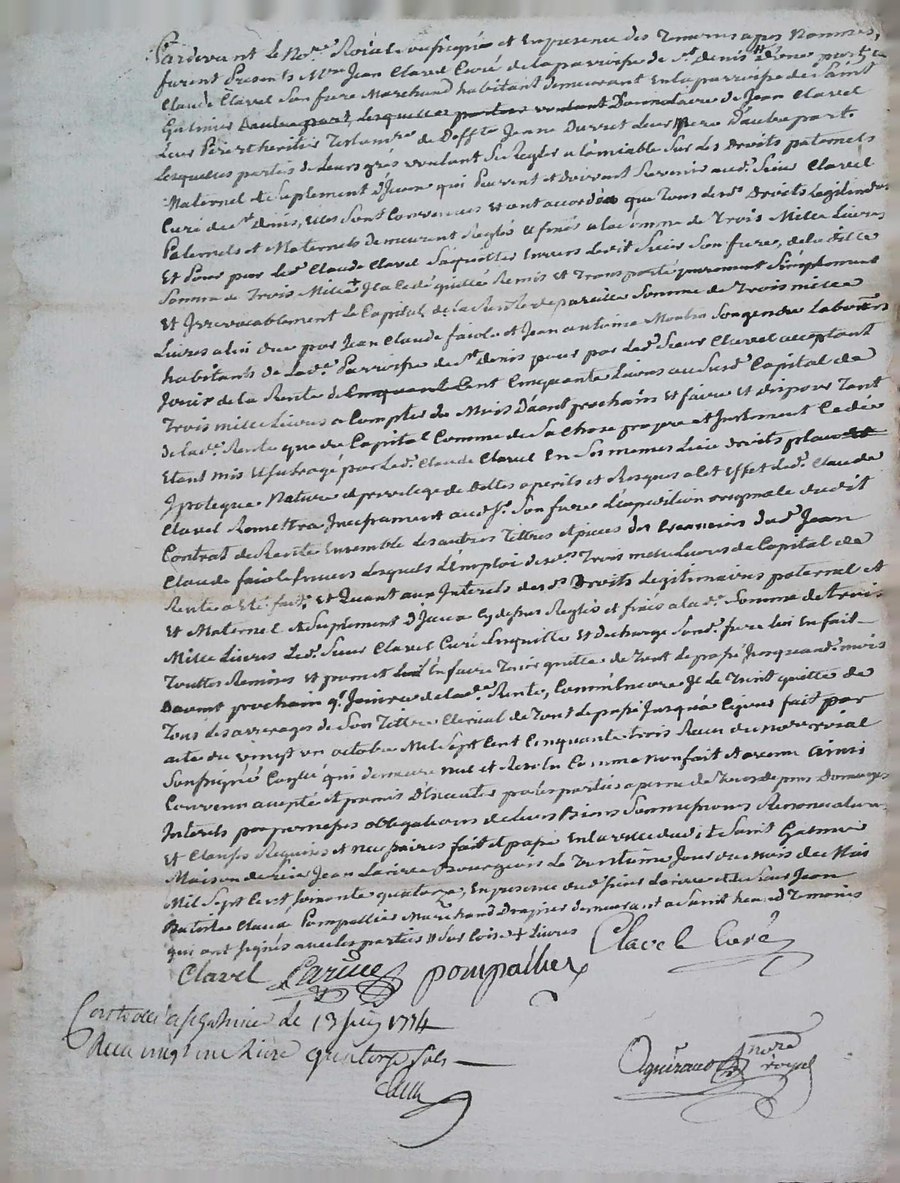 Pardevant le No.re Roial soussigné et En presence des Temoins apres Nommés,
furent Presents M.re Jean Clavel Curé de la parroisse de S.t Denis d'une part, et
Claude Clavel Son frere Marchand habitant demeurant En la parroisse de Saint
Galmier Dautre part, Lesquelles parties de Jean Clavel
Leur Pere et heritier Testam.re de Deffte Jeanne Leur Mere Dautre part.
Lesquelles parties de Leurs grés voulant Se Regler a lamiable Sur Les Droits paternels
Maternel et Suplement D'Iceux qui peuvent et doivent Revenir aud. Sieur Clavel
Curé de S.t Denis, Elles Sont Convenues et ont accordés que Tous lesd. Droits Legitimaires
Paternels et Maternels demeurent Reglés et fixés a la Somme de Trois Mille Livres
Et Pour par Led. Claude Clavel Saquitter Envers Ledit Sieur Son frere, de la ditte
Somme de Trois Mille Il a Cedé quitté Remis et Transporté purement Simplement
et Irrevocablement Le Capital de la Rente de pareille Somme de Trois mille
Livres a lui due par Jean Claude faiole et Jean antoine Moulin Son gendre Laboureurs
habitants de Lad. Parroisse de S.t Denis pour par Led. Sieur Clavel acceptant
Jouir de la Rente de Cent Cinquante Livres au Susd. Capital de
Trois mille Livres a Compter du Mois Daout prochain Et faire et disposer Tant
de Lad. Rente que du Capital Comme de Sa Chose propre et Justement Cedée
Etant mis et Subrogé par Led. Claude Clavel En Ses mêmes Lieu droits place
Ypoteque Nature et privilege de Dettes a perils et Risques a Cet Effet Led. Claude
Clavel Remettra Incessament aud. S.r Son frere L'expedition originale dudit
Contrat de Rente Ensemble les autres Tittres et pieces des Creanciers dud. Jean
Claude faiole Envers Lesquels L'Emploi desd. Trois mille Livres de Capital de
Rente a Eté fait, Et Quant aux Interets desd. Droits Legitimaires paternel et
Et Maternel et Suplement D'Iceux Cy desus Reglés et fixés a lad. Somme de trois
Mille Livres Led. Sieur Clavel Curé En quitte et Decharge Sond. frere lui En fait
Touttes Remises Et promet En faire Tenir quitte de Tout Le passé Jusqu'aud. mois
Daout prochain Jouira de lad. Rente, Comm'Encore Il Le Tient quitte de
Tous Les arrerages de Son Tittre Clerical de Tout Le passé Jusqu'a Ce jour fait par
acte du vingt un octobre Mil Sept Cent Cinquante trois Recu du no.re roial
Soussigné Lequel qui demeure nul et Resolu Comme non fait et avenu ainsi
Convenu accepté et promis D'Executer par les parties a peine de Tous Depens Domages
Interets par promesses obligations de Leurs Biens Soumissions Renonciations
Et Clauses Requises et necessaires fait et passé En la ville de Saint Galmier
Maison de Sieur Jean Larive Bourgeois Le Trentieme Jour du mois de Mai
Mil Sept Cent Soixante quatorze, En presence dud. Sieur Larive et de Sieur Jean
Claude Pompallier Marchand Drapier demeurant a Saint Temoins
qui ont Signés avec les parties Livres
Clavel Larive pompallier Clavel Curé
Controllé a S.t Galmier le 13 juin 1774
Recu vingt une livre quatorze Sols
Notre royal